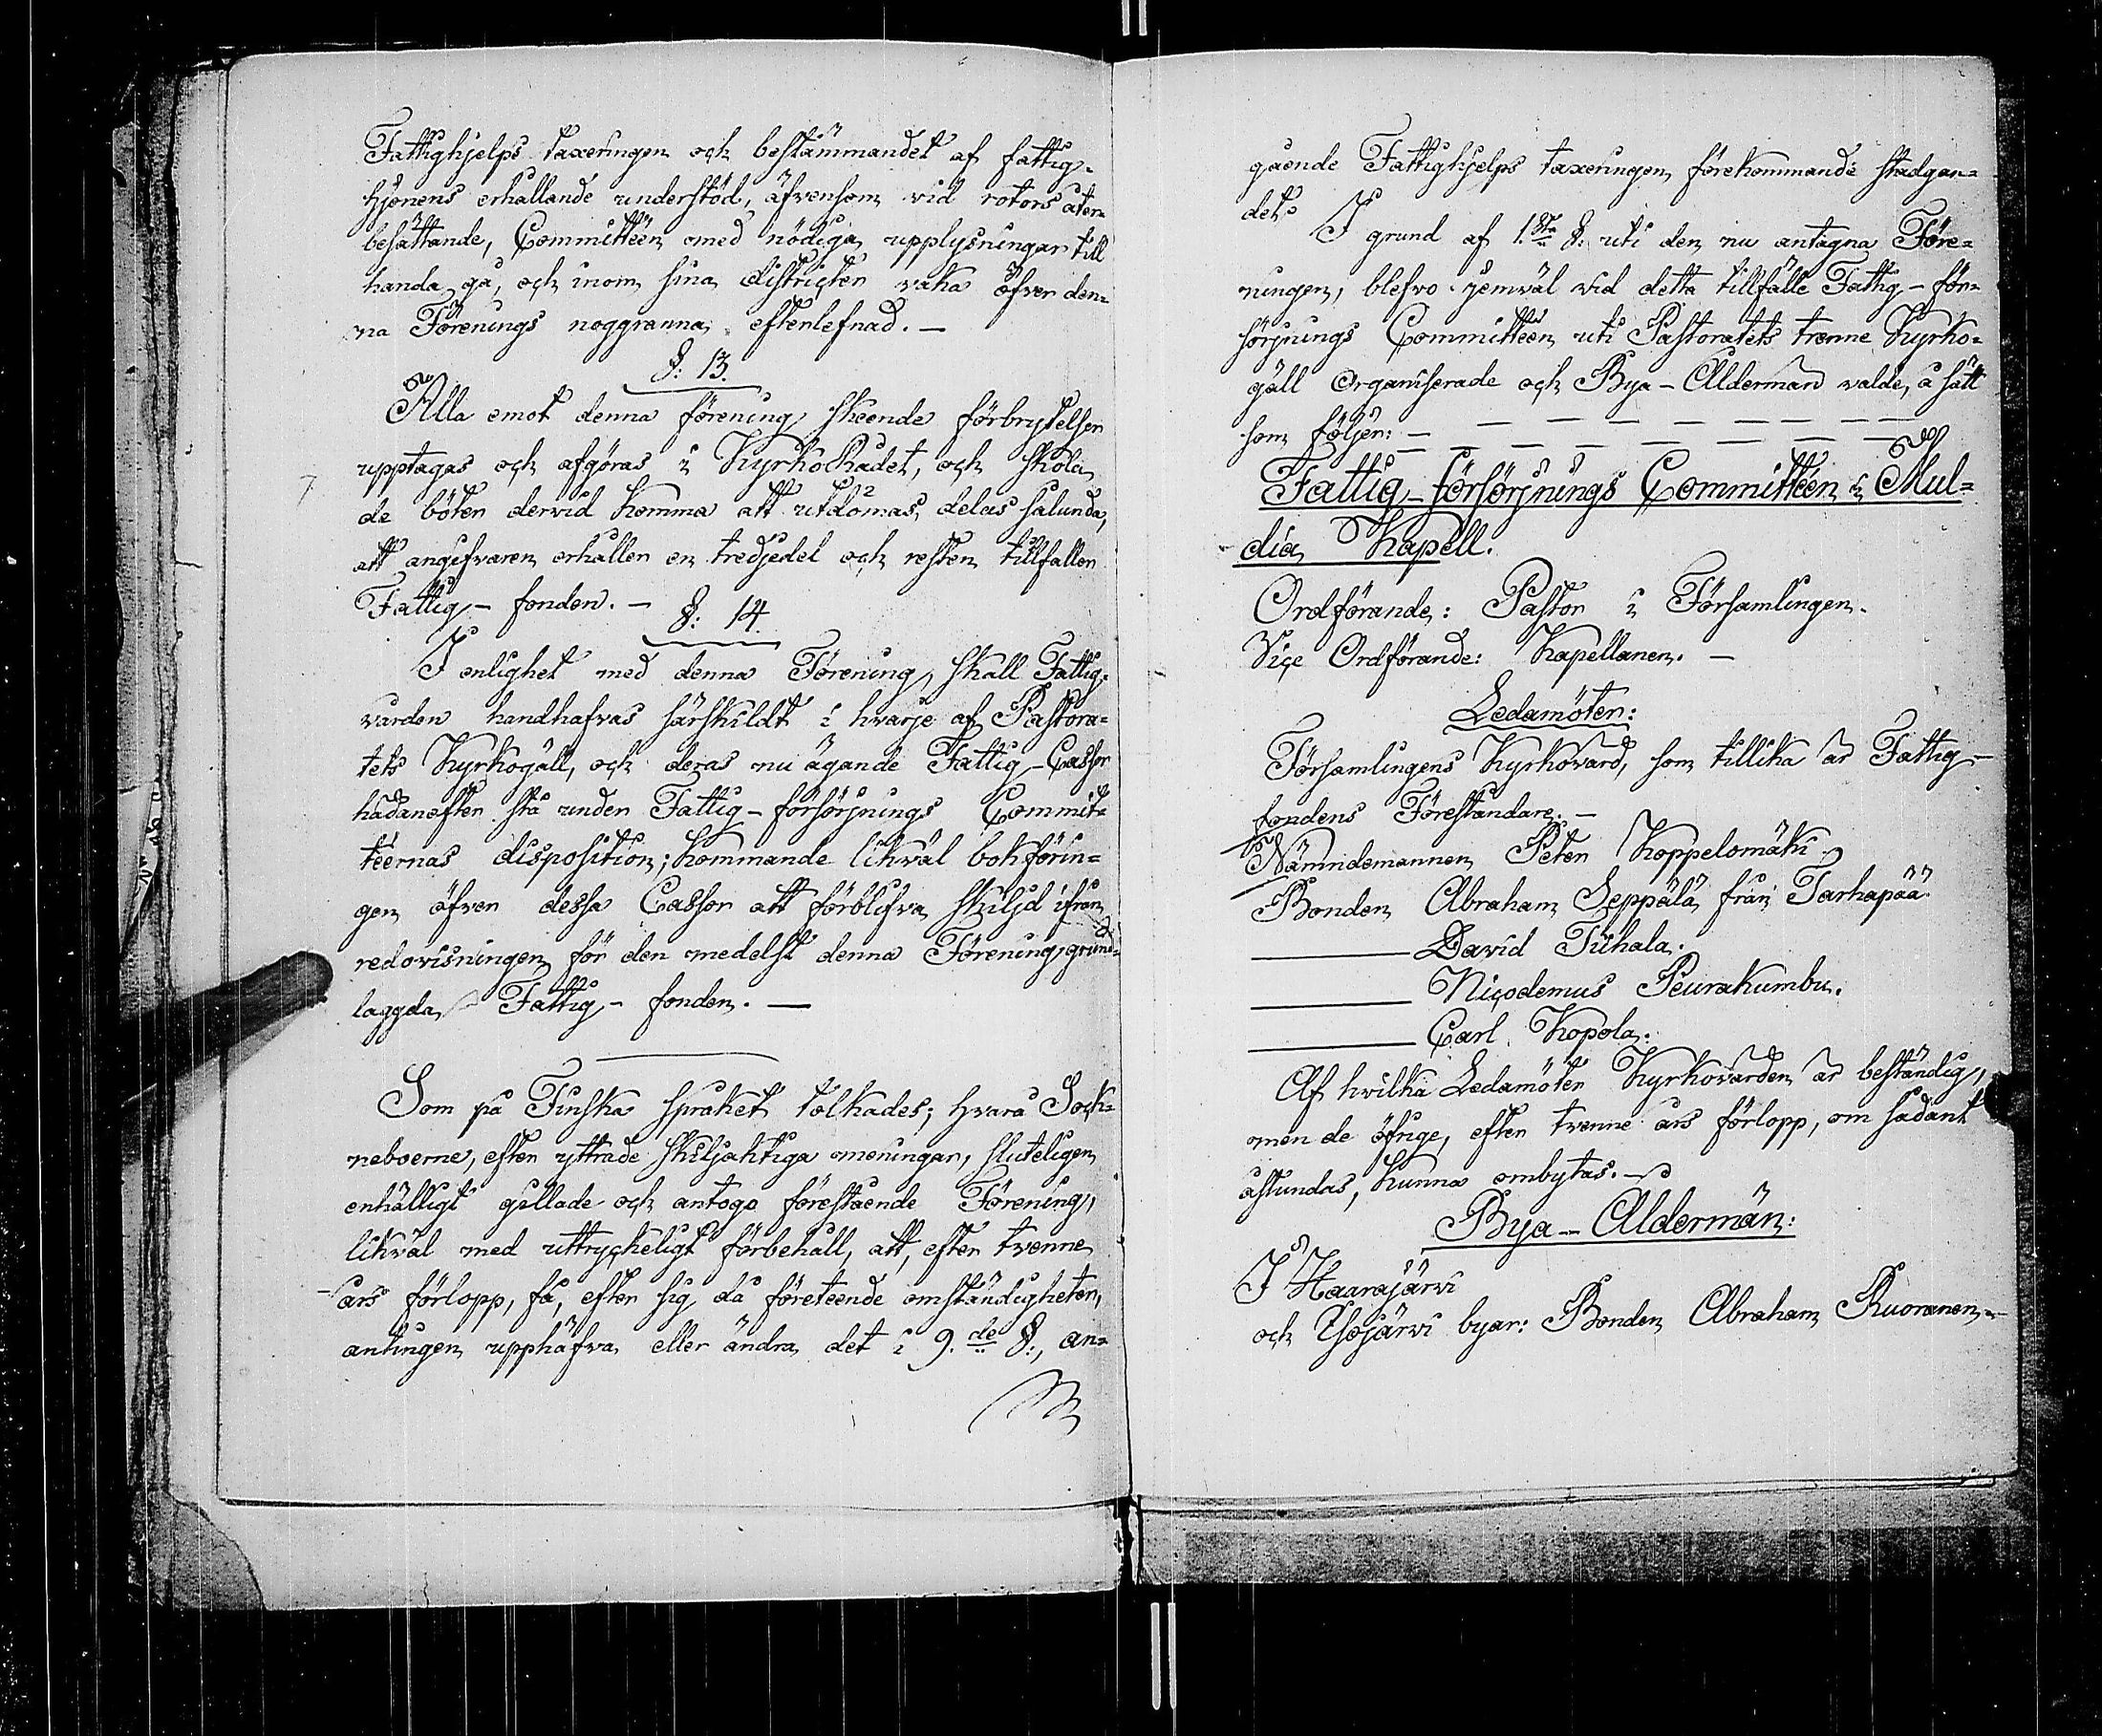 Fattighjelps taxeringen och bestämmandet af fattig-
hjonens erhållande understöd, äfvensom vid rotors åter-
besättande, Committéen med nödiga upplysningar till
handa gå, och inom sina districter vaka öfver den-
na Förenings noggranna efterlefnad. —
§: 13.
Alla emot denna förening skeende förbrytelser
upptagas och afgöras i KyrkoRådet, och skola
de böter dervid komma att utdömas, delas sålunda,
att angifvaren erhåller en tredjedel och resten tillfaller
Fattig-fonden. —
§: 14.
I enlighet med denna Förening, skall Fattig-
vården handhafvas särskildt i hvarje af Pastora-
tets Kyrkogäll, och deras nu ägande Fattig-Cassor
hädanefter stå under Fattig-försörjnings Commit-
téernas disposition; kommande likväl bokförin-
gen öfver dessa Cassor att förblifva skiljd ifrån
redovisningen för den medelst denna Förening, grund-
laggda Fattig-fonden. —
Som på Finska språket tolkades; hvarå Sock-
neboerne, efter yttrade skiljaktiga meningar, sluteligen
enhälligt gillade och antogo förestående Förening,
likväl med uttryckeligt förbehåll, att, efter trenne
års förlopp, få, efter sig då företeende omständigheter,
antingen upphäfva eller ändra det i 9.de §:, an-
gående Fattighjelps taxeringen, förekommande stadgan-
det.
I grund af 1.sta §: uti den nu antagna Före-
ningen, blefvo jemväl vid detta tillfälle Fattig-för-
sörjnings Committéen uti Pastoratets trenne Kyrko-
gäll Organiserade och Bya-Ålderman valde, å sätt
som följer: —
Fattig-försörjnings Committéen i Mul-
dia Kapell.
Ordförande: Pastor i Församlingen.
Vice Ordförande: Kapellanen. —
Ledamöter:
Församlingens Kyrkovärd, som tillika är Fattig-
fondens Föreståndare. —
Nämndemannen Peter Koppelomäki
Bonden Abraham Seppälä från Tarhapää
——— David Tuhala.
——— Nicodemus Peurakumbu.
——— Carl Kopola.
Af hvilka Ledamöter Kyrkovärden är beständig,
men de öfrige, efter trenne års förlopp, om sådant
åstundas, kunna ombytas. —
Bya-Åldermän:
I Haarajärvi
och Ahojärvi byar: Bonden Abraham Ruoranen —